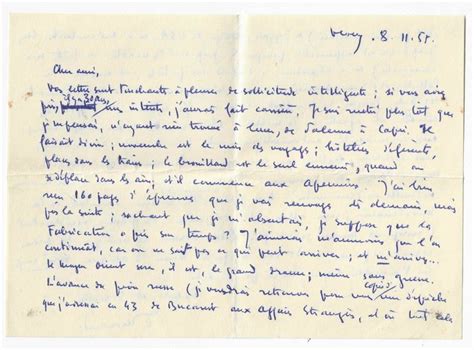 Vevey. 8. 11. 55.
Cher ami,
Vos lettres sont touchantes & pleines de sollicitude intelligente ; si vous aviez
pris, il y a 30 ans, j'aurais fait carrière. Je suis rentré plus tôt que
je pensais, n'ayant rien trouvé à louer, de Salerne à Capri. Il
faisait divin ; novembre est le mois des voyages ; hôtelier déférent,
places dans les trains ; le brouillard est le seul ennemi, quand on
se déplace dans les airs, et il commence aux Apennins. J'ai bien
reçu 160 pages d'épreuves que je vais renvoyer dès demain, mais
pas la suite ; sachant que je m'absentais, je suppose que la
Fabrication a pris son temps ? J'aimerais m'assurer que l'on
continuât, car on ne sait pas ce qui peut arriver ; et m'arriver...
le moyen Orient sera, il est, le grand drame ; même sans guerre.
L'avance du front russe (je voudrais retrouver pour vous copie d'une dépêche
que j'adressai en 43 de Bucarest aux Affaires Etrangères, et où tout cela